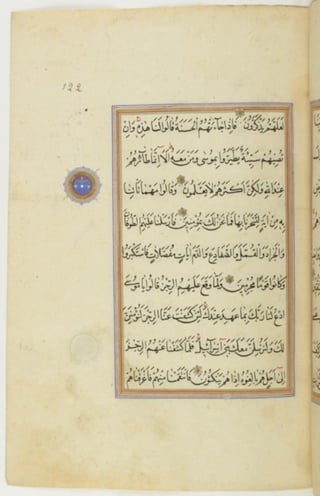 122
لَعَلَّهُمْ يَذَّكَّرُونَ فَإِذَا جَاءَتْهُمُ الْحَسَنَةُ قَالُوا لَنَا هَذِهِ وَإِنْ
تُصِبْهُمْ سَيِّئَةٌ يَطَّيَّرُوا بِمُوسَى وَمَنْ مَعَهُ أَلَا إِنَّمَا طَائِرُهُمْ
عِنْدَ اللهِ وَلَكِنَّ أَكْثَرَهُمْ لَا يَعْلَمُونَ وَقَالُوا مَهْمَا تَأْتِنَا
بِهِ مِنْ آيَةٍ لِتَسْحَرَنَا بِهَا فَمَا نَحْنُ لَكَ بِمُؤْمِنِينَ فَأَرْسَلْنَا عَلَيْهِمُ الطُّوفَانَ
وَالْجَرَادَ وَالْقُمَّلَ وَالضَّفَادِعَ وَالدَّمَ آيَاتٍ مُفَصَّلَاتٍ فَاسْتَكْبَرُوا
وَكَانُوا قَوْمًا مُجْرِمِينَ وَلَمَّا وَقَعَ عَلَيْهِمُ الرِّجْزُ قَالُوا يَا مُوسَى
ادْعُ لَنَا رَبَّكَ بِمَا عَهِدَ عِنْدَكَ لَئِنْ كَشَفْتَ عَنَّا الرِّجْزَ لَنُؤْمِنَنَّ
لَكَ وَلَنُرْسِلَنَّ مَعَكَ بَنِي إِسْرَائِيلَ فَلَمَّا كَشَفْنَا عَنْهُمُ الرِّجْزَ
إِلَى أَجَلٍ هُمْ بَالِغُوهُ إِذَا هُمْ يَنْكُثُونَ فَانْتَقَمْنَا مِنْهُمْ فَأَغْرَقْنَاهُمْ